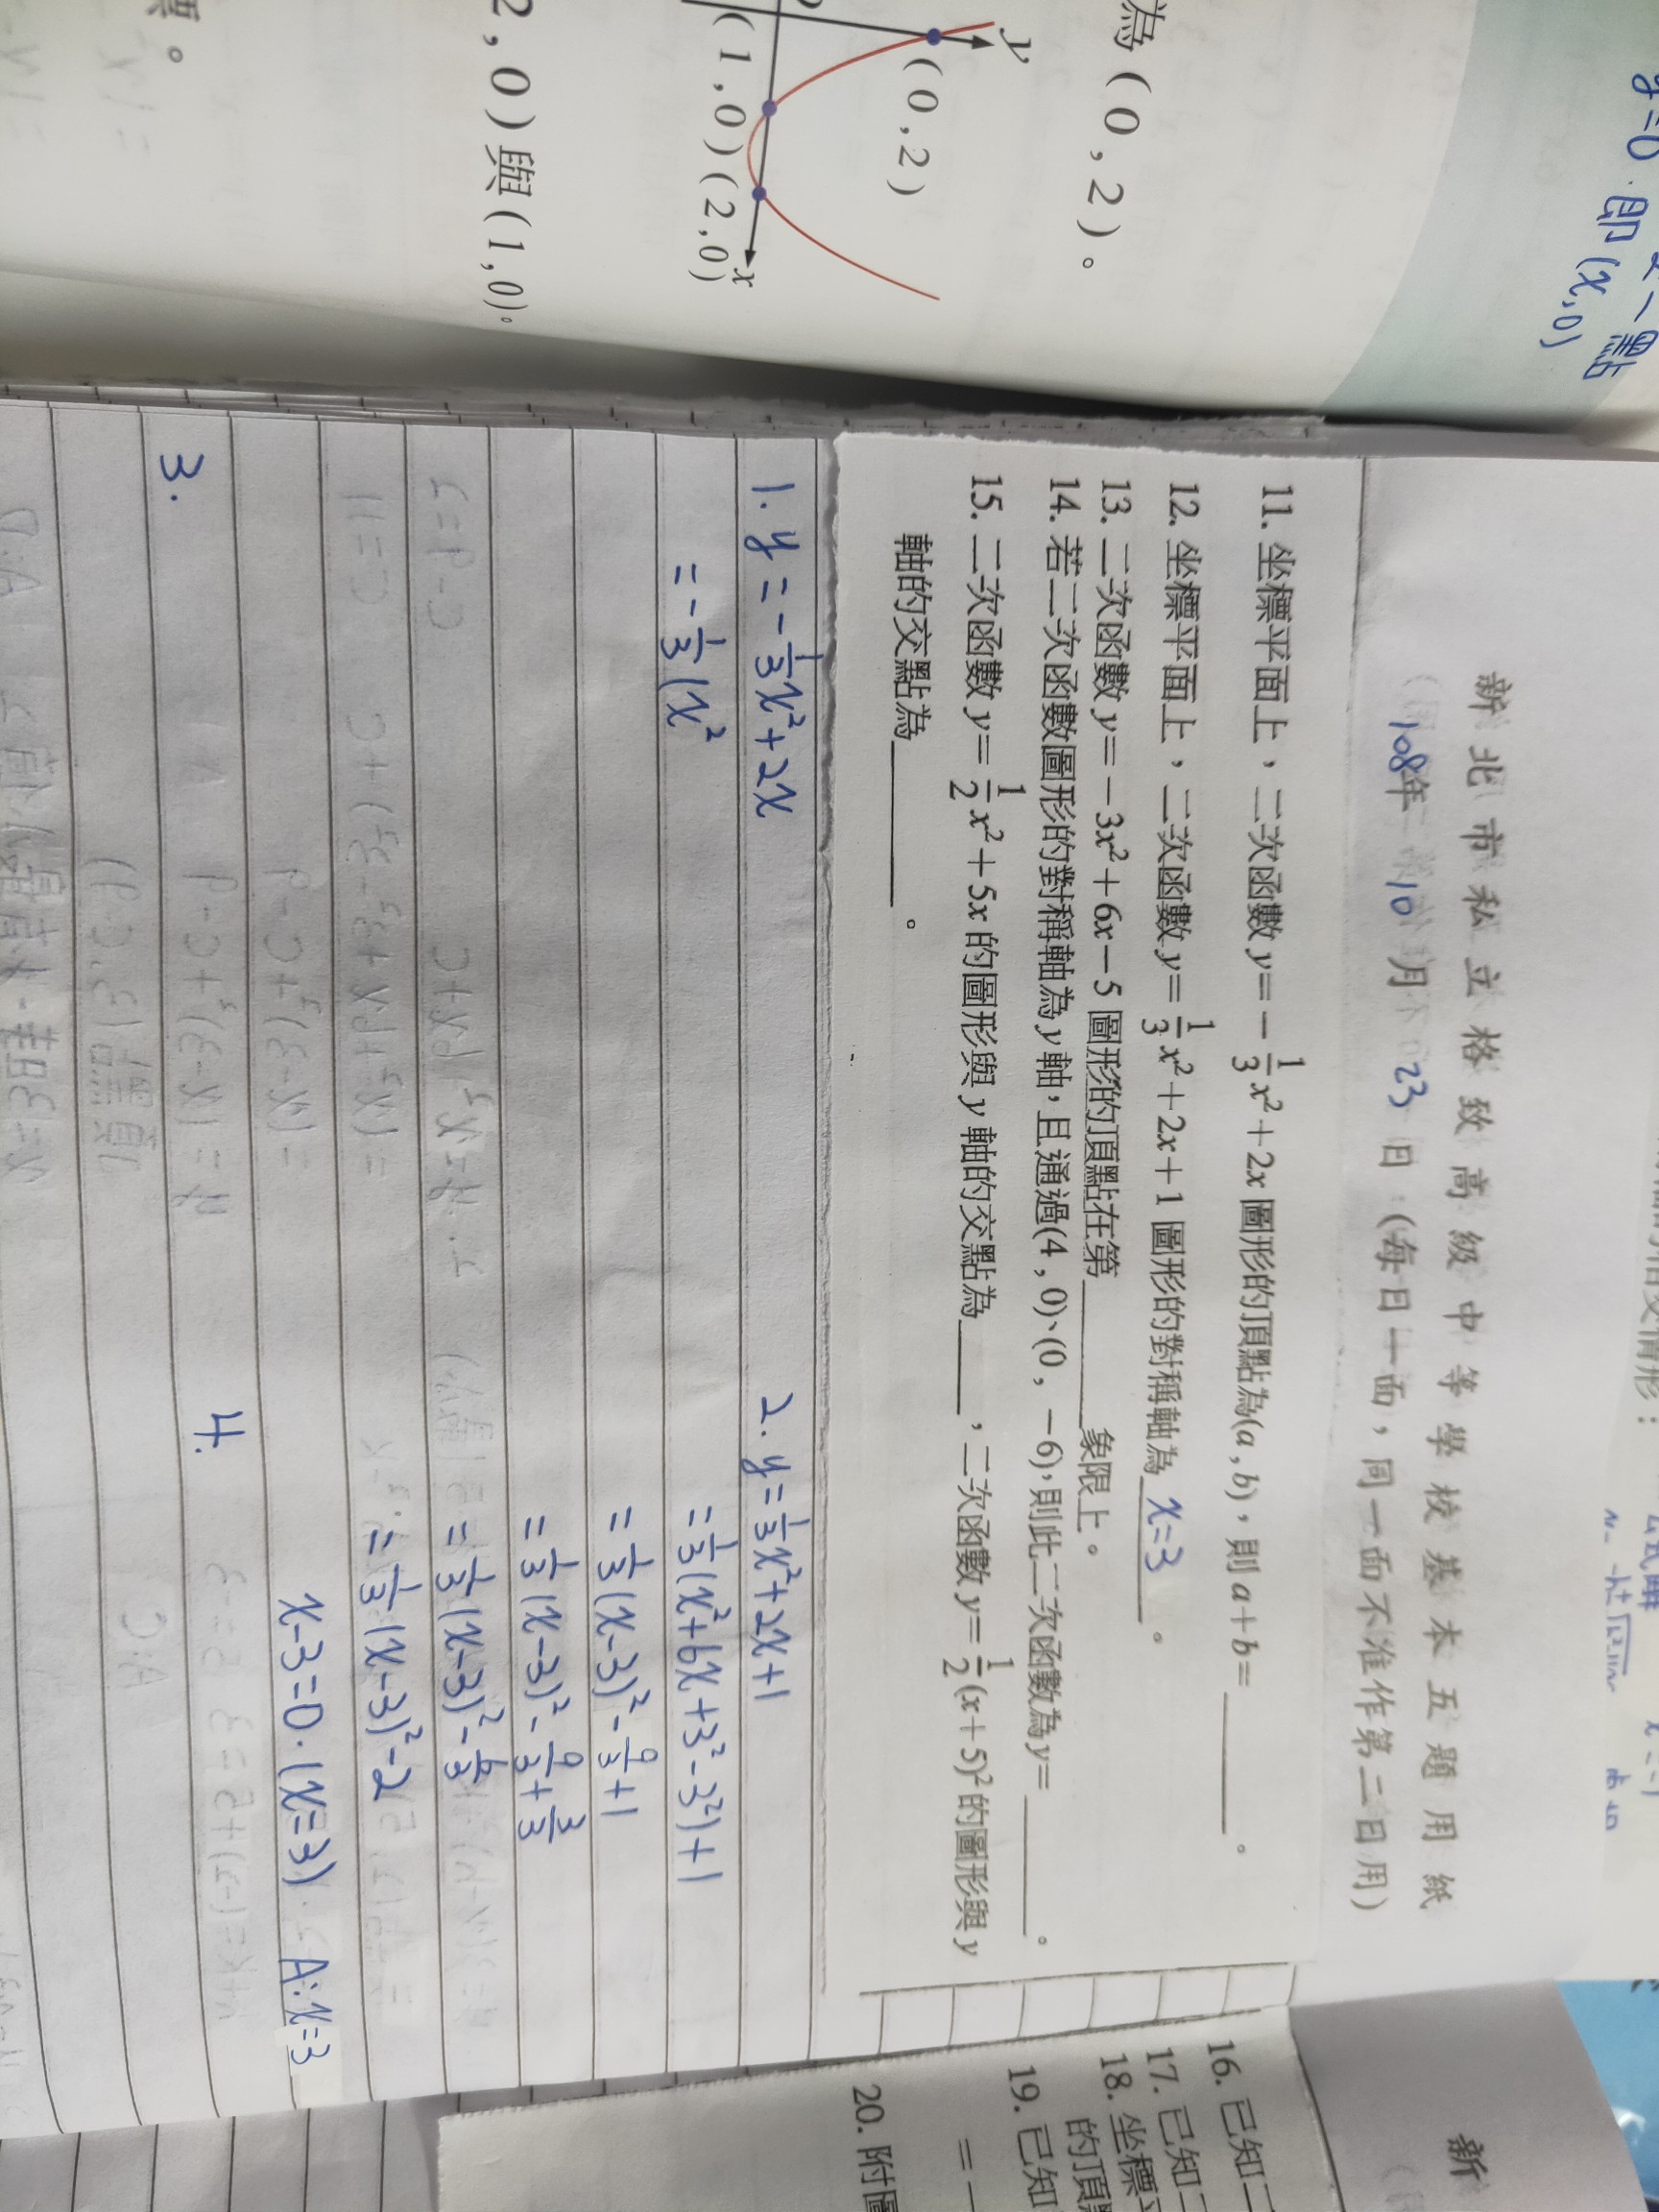 y=0.即(x,0)
為(0,2)。
y
(0,2)
x
(1,0)(2,0)
2,0)與(1,0)。
新北市私立格致高級中等學校基本五題用紙
108年 10月 23日 (每日一面,同一面不准作第二日用)
11. 坐標平面上,二次函數 y=-\frac{1}{3}x²+2x 圖形的頂點為(a,b),則 a+b=______。
12. 坐標平面上,二次函數 y=\frac{1}{3}x²+2x+1 圖形的對稱軸為 x=3 。
13. 二次函數 y=-3x²+6x-5 圖形的頂點在第______象限上。
14. 若二次函數圖形的對稱軸為 y 軸,且通過(4,0)、(0,-6),則此二次函數為 y=______。
15. 二次函數 y=\frac{1}{2}x²+5x 的圖形與 y 軸的交點為____,二次函數 y=\frac{1}{2}(x+5)² 的圖形與 y
軸的交點為______。
1. y=-\frac{1}{3}x²+2x
=-\frac{1}{3}(x²
2. y=\frac{1}{3}x²+2x+1
=\frac{1}{3}(x²+6x+3²-3²)+1
=\frac{1}{3}(x-3)²-\frac{9}{3}+1
=\frac{1}{3}(x-3)²-\frac{9}{3}+\frac{3}{3}
=\frac{1}{3}(x-3)²-\frac{6}{3}
=\frac{1}{3}(x-3)²-2
x-3=0.(x=3) A:x=3
3.
4.
新
16. 已知二
17. 已知二
18. 坐標平
的頂點
19. 已知
=-
20. 附圖